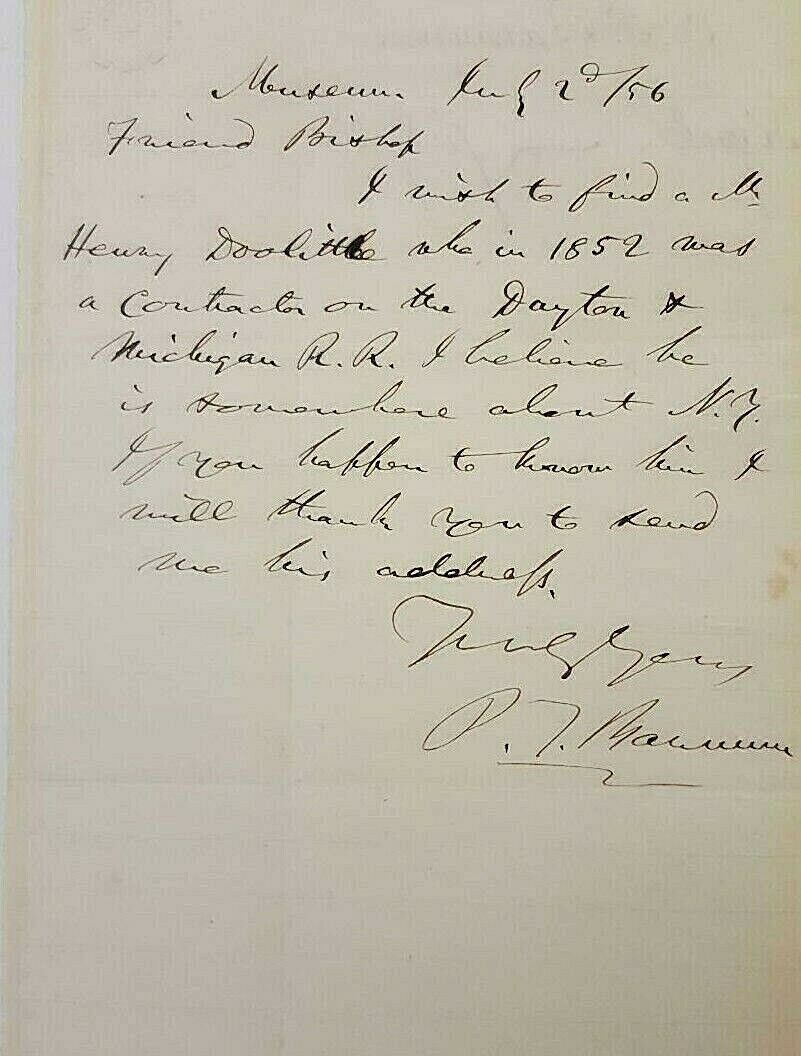 Museum July 2d/56
Friend Bishop
I wish to find a Mr
Henry Doolittle who in 1852 was
a Contractor on the Dayton &
Michigan R.R. I believe he
is somewhere about N.Y.
If you happen to know him I
will thank you to send
me his address.
Truly Yours
P. T. Barnum